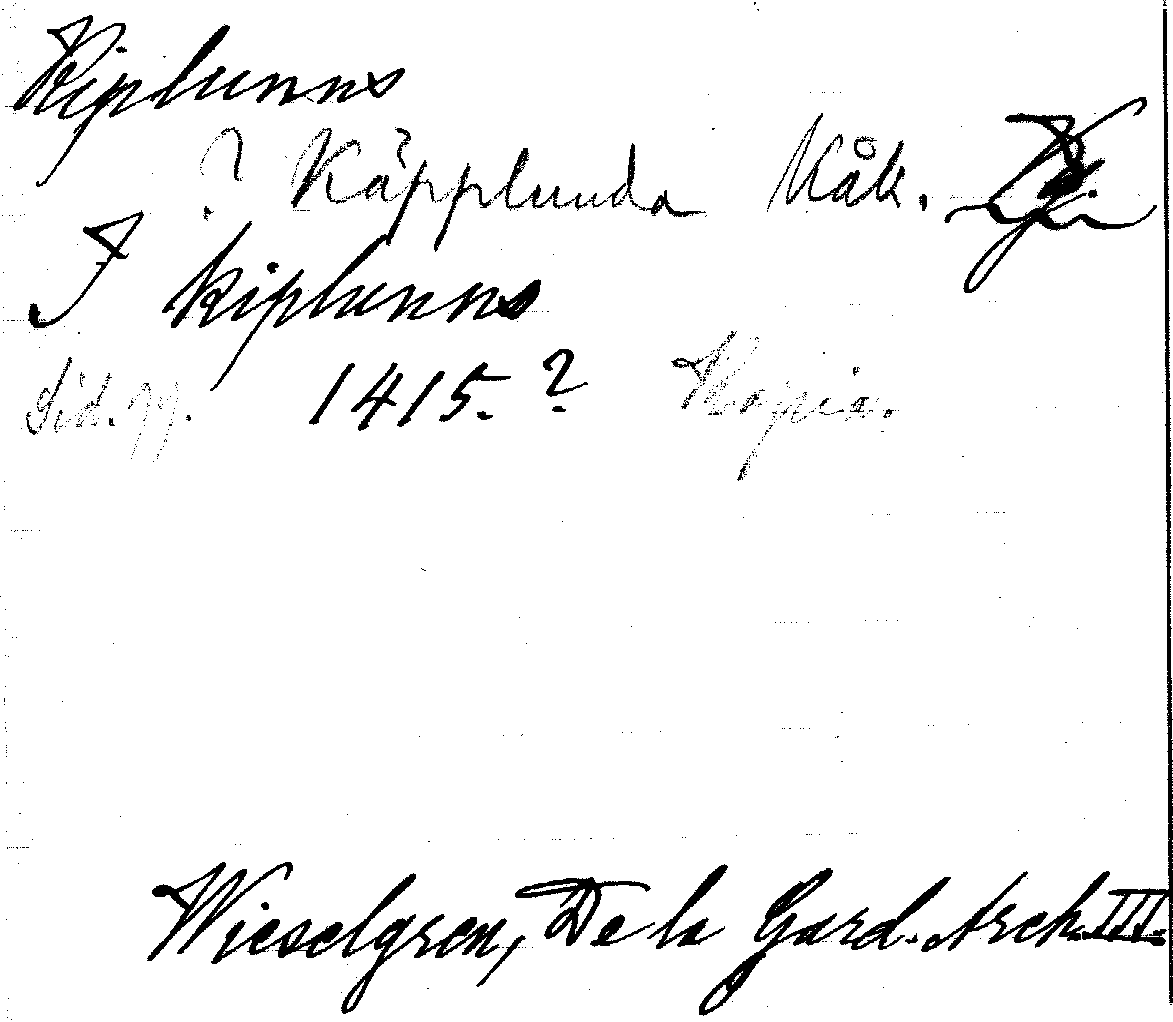 Kiplunns
? Käpplunda Kåk.
I kiplunns
Sid. 77. 1415. ? Kopia.
Wieselgren, De la Gard. Arch. III.